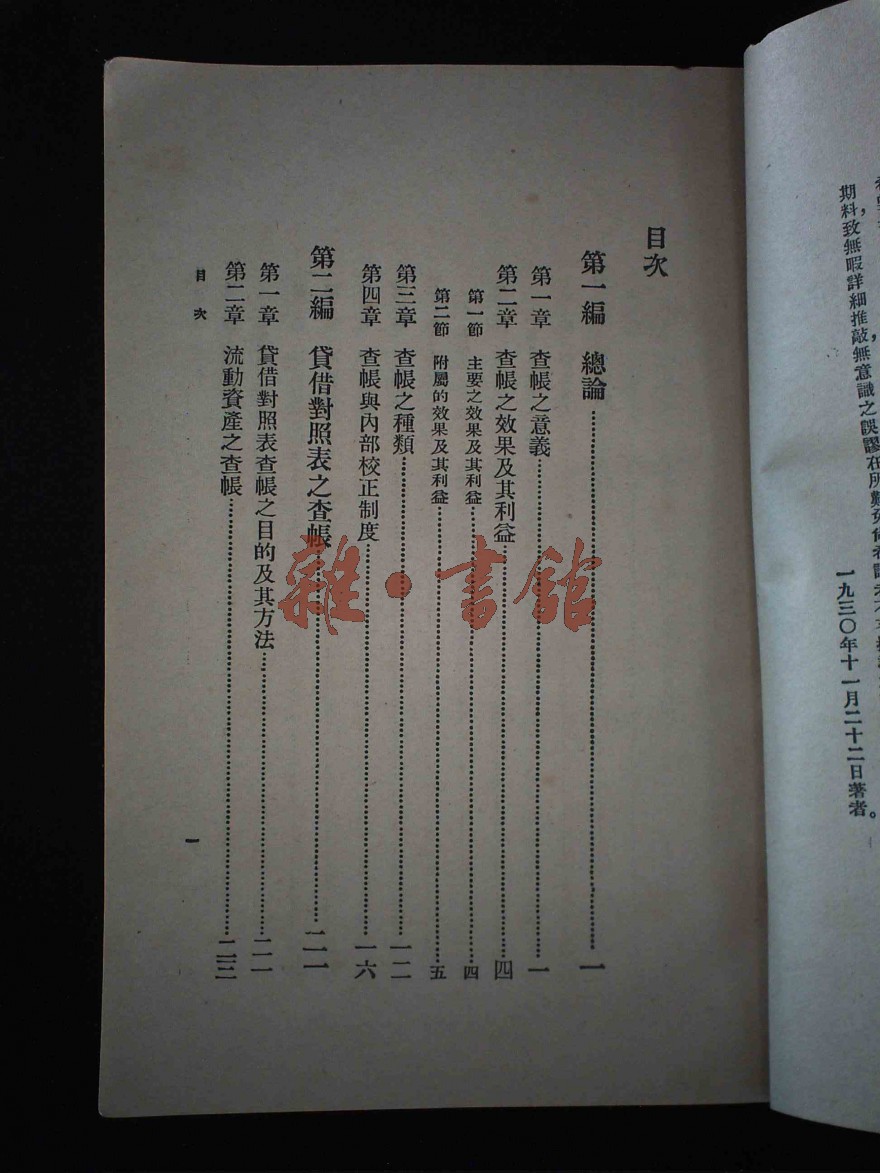 期料致無暇詳細推敲無意識之誤謬在所難免
一九三〇年十一月二十二日著者。
目次
第一編 總論……一
第一章 查帳之意義……一
第二章 查帳之效果及其利益……四
第一節 主要之效果及其利益……四
第二節 附屬的效果及其利益……五
第三章 查帳之種類……一二
第四章 查帳與內部校正制度……一六
第二編 貸借對照表之查帳……二一
第一章 貸借對照表查帳之目的及其方法……二一
第二章 流動資產之查帳……二三
目次
一
雜·書館